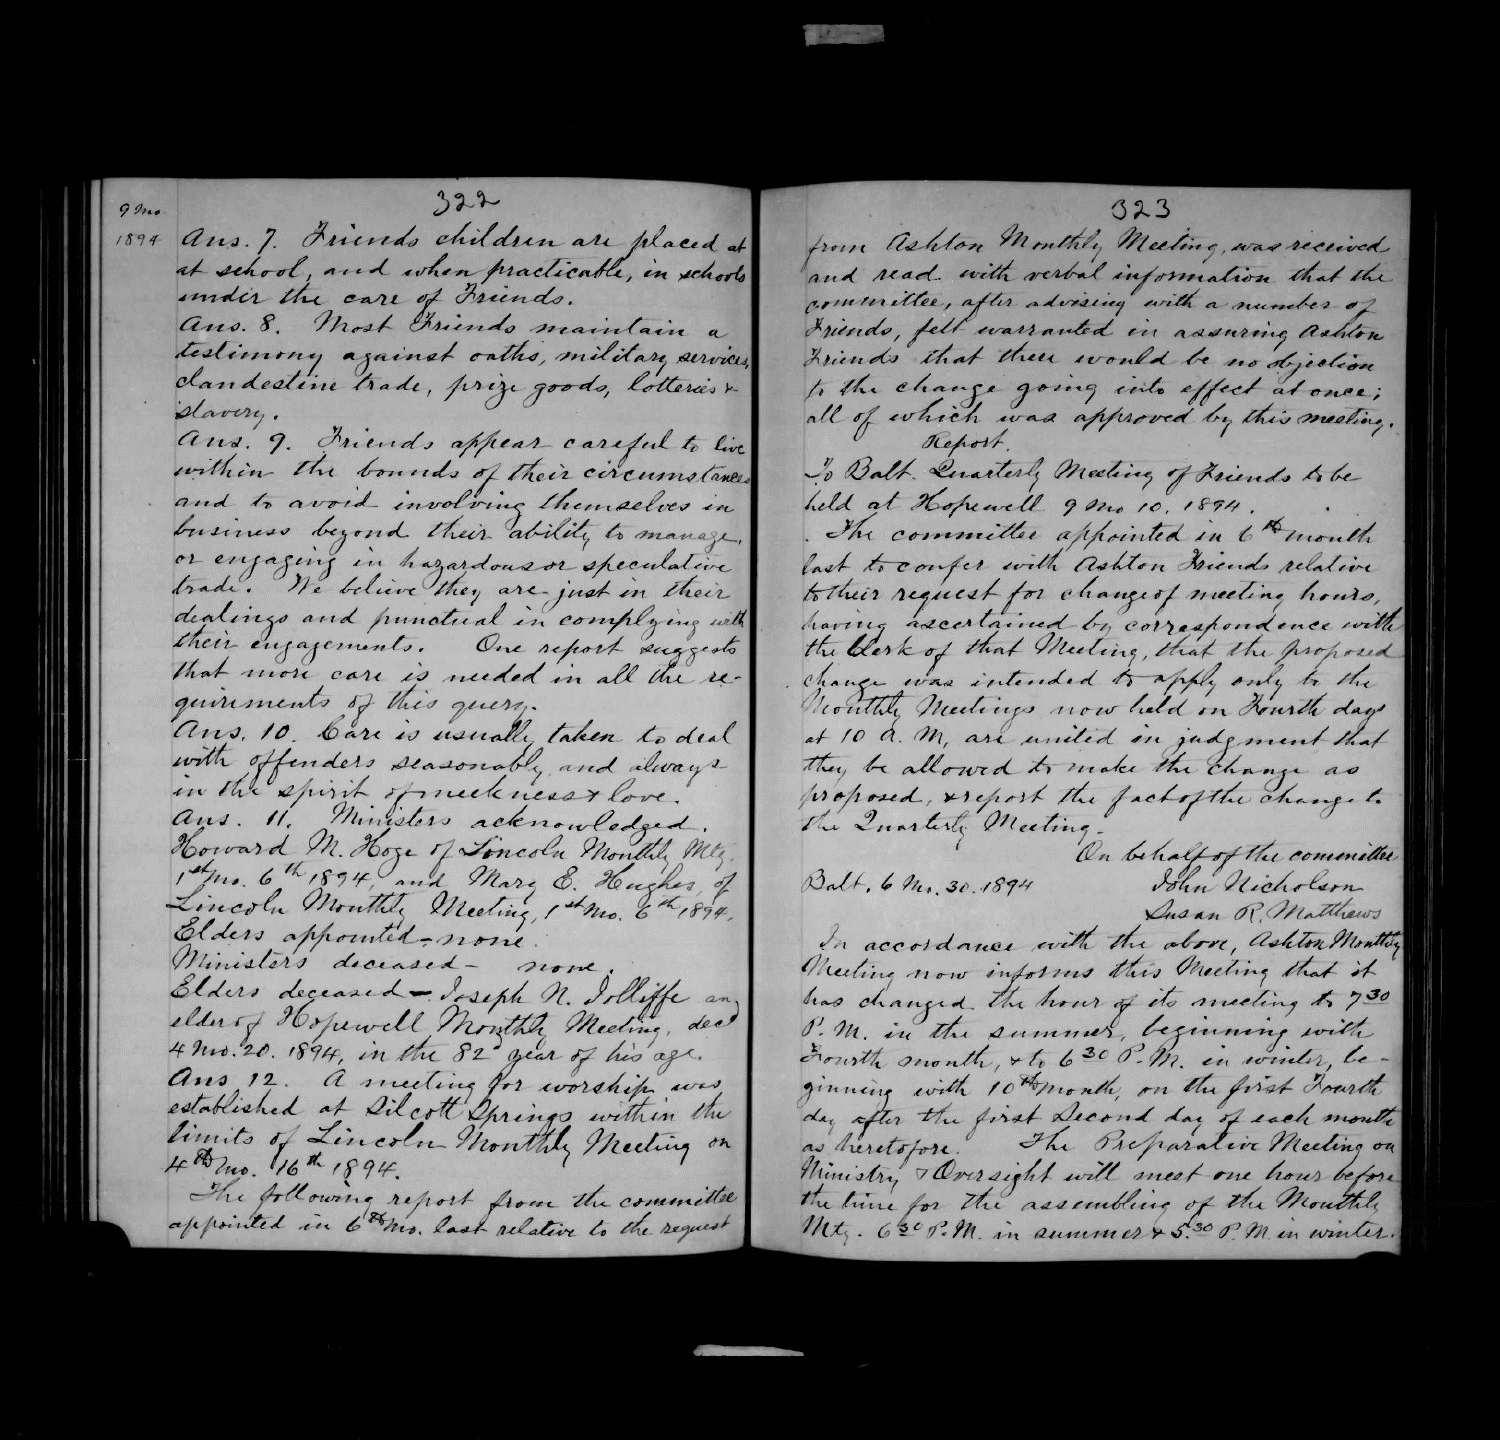 322
9 Mo
1894
Ans. 7. Friends children are placed at
at school, and when practicable, in schools
under the care of Friends.
Ans. 8. Most Friends maintain a
testimony against oaths, military services,
clandestine trade, prize goods, lotteries &
slavery.
Ans. 9. Friends appear careful to live
within the bounds of their circumstances
and to avoid involving themselves in
business beyond their ability to manage,
or engaging in hazardous or speculative
trade. We believe they are just in their
dealings and punctual in complying with
their engagements. One report suggests
that more care is needed in all the re-
quirements of this query.
Ans. 10. Care is usually taken to deal
with offenders seasonably and always
in the spirit of meekness & love.
Ans. 11. Ministers acknowledged.
Howard M. Hoge of Lincoln Monthly Mtg.
1st Mo. 6th 1894, and Mary E. Hughes, of
Lincoln Monthly Meeting, 1st Mo. 6th 1894.
Elders appointed - none.
Ministers deceased - none.
Elders deceased - Joseph N. Jolliffe an
elder of Hopewell Monthly Meeting, decd
4 Mo. 20. 1894, in the 82d year of his age.
Ans. 12. A meeting for worship was
established at Silcott Springs within the
limits of Lincoln Monthly Meeting on
4th Mo. 16th 1894.
The following report from the committee
appointed in 6th Mo. last relative to the request
323
from Ashton Monthly Meeting, was received
and read with verbal information that the
committee, after advising with a number of
Friends, felt warranted in assuring Ashton
Friends that there would be no objection
to the change going into effect at once;
all of which was approved by this meeting.
Report.
To Balt. Quarterly Meeting of Friends to be
held at Hopewell 9 Mo 10. 1894.
The committee appointed in 6th month
last to confer with Ashton Friends relative
to their request for change of meeting hours,
having ascertained by correspondence with
the Clerk of that Meeting, that the proposed
change was intended to apply only to the
Monthly Meetings now held on Fourth days
at 10 A. M, are united in judgment that
they be allowed to make the change as
proposed, & report the fact of the change to
the Quarterly Meeting.
On behalf of the committee
Balt. 6 Mo. 30. 1894
John Nicholson
Susan R. Matthews
In accordance with the above, Ashton Monthly
Meeting now informs this Meeting that it
has changed the hour of its meeting to 7 30
P. M. in the summer, beginning with
Fourth month, & to 6 30 P. M. in winter, be-
ginning with 10th month, on the first Fourth
day after the first Second day of each month
as heretofore. The Preparative Meeting on
Ministry & Oversight will meet one hour before
the time for the assembling of the Monthly
Mtg. 6 30 P. M. in summer & 5. 30 P. M. in winter.